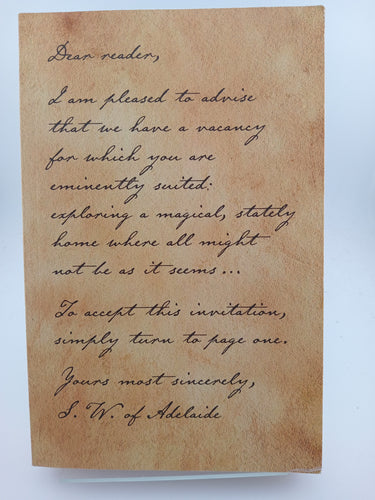 Dear reader,
I am pleased to advise
that we have a vacancy
for which you are
eminently suited:
exploring a magical, stately
home where all might
not be as it seems...
To accept this invitation,
simply turn to page one.
Yours most sincerely,
S. W. of Adelaide